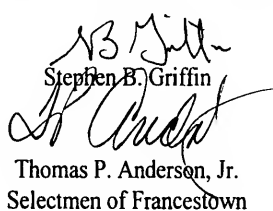 SB Griffin
Stephen B. Griffin
Thomas P. Anderson, Jr.
Selectmen of Francestown